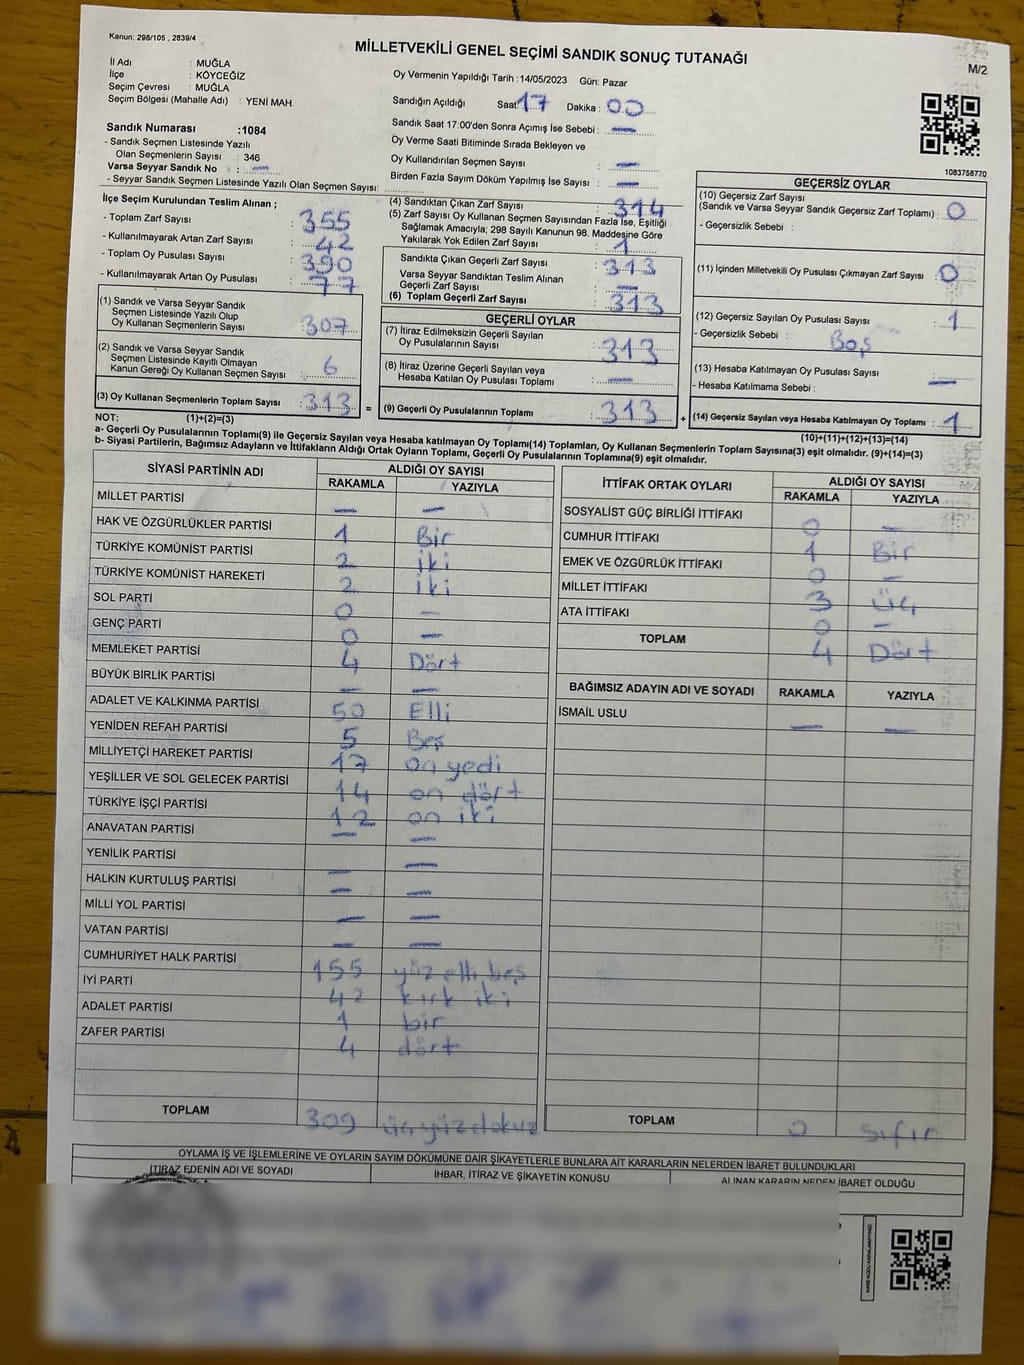 Kanun, 298/105 , 2839/4
MİLLETVEKİLİ GENEL SEÇİMİ SANDIK SONUÇ TUTANAĞI
M/2
İl Adı : MUĞLA
İlçe : KÖYCEĞİZ
Seçim Çevresi : MUĞLA
Seçim Bölgesi (Mahalle Adı) : YENİ MAH.
Sandık Numarası :1084
- Sandık Seçmen Listesinde Yazılı
Olan Seçmenlerin Sayısı : 346
Varsa Seyyar Sandık No : —
- Seyyar Sandık Seçmen Listesinde Yazılı Olan Seçmen Sayısı:
Oy Vermenin Yapıldığı Tarih :14/05/2023 Gün: Pazar
Sandığın Açıldığı Saat 17 Dakika : 00
Sandık Saat 17:00'den Sonra Açımış İse Sebebi : —
Oy Verme Saati Bitiminde Sırada Bekleyen ve
Oy Kullandırılan Seçmen Sayısı : —
Birden Fazla Sayım Döküm Yapılmış İse Sayısı : —
1083758770
İlçe Seçim Kurulundan Teslim Alınan ;
- Toplam Zarf Sayısı : 355
- Kullanılmayarak Artan Zarf Sayısı : 42
- Toplam Oy Pusulası Sayısı : 390
- Kullanılmayarak Artan Oy Pusulası : 77
(1) Sandık ve Varsa Seyyar Sandık
Seçmen Listesinde Yazılı Olup
Oy Kullanan Seçmenlerin Sayısı : 307
(2) Sandık ve Varsa Seyyar Sandık
Seçmen Listesinde Kayıtlı Olmayan
Kanun Gereği Oy Kullanan Seçmen Sayısı : 6
(3) Oy Kullanan Seçmenlerin Toplam Sayısı : 313 =
(4) Sandıktan Çıkan Zarf Sayısı : 314
(5) Zarf Sayısı Oy Kullanan Seçmen Sayısından Fazla İse, Eşitliği
Sağlamak Amacıyla; 298 Sayılı Kanunun 98. Maddesine Göre
Yakılarak Yok Edilen Zarf Sayısı : 1
Sandıkta Çıkan Geçerli Zarf Sayısı : 313
Varsa Seyyar Sandıktan Teslim Alınan
Geçerli Zarf Sayısı : —
(6) Toplam Geçerli Zarf Sayısı : 313
GEÇERLİ OYLAR
(7) İtiraz Edilmeksizin Geçerli Sayılan
Oy Pusulalarının Sayısı : 313
(8) İtiraz Üzerine Geçerli Sayılan veya
Hesaba Katılan Oy Pusulası Toplamı : —
(9) Geçerli Oy Pusulalarının Toplamı : 313 +
GEÇERSİZ OYLAR
(10) Geçersiz Zarf Sayısı
(Sandık ve Varsa Seyyar Sandık Geçersiz Zarf Toplamı) : 0
- Geçersizlik Sebebi :
(11) İçinden Milletvekili Oy Pusulası Çıkmayan Zarf Sayısı : 0
(12) Geçersiz Sayılan Oy Pusulası Sayısı : 1
- Geçersizlik Sebebi : Boş
(13) Hesaba Katılmayan Oy Pusulası Sayısı : —
- Hesaba Katılmama Sebebi :
(14) Geçersiz Sayılan veya Hesaba Katılmayan Oy Toplamı : 1
NOT: (1)+(2)=(3)
(10)+(11)+(12)+(13)=(14)
a- Geçerli Oy Pusulalarının Toplamı(9) ile Geçersiz Sayılan veya Hesaba katılmayan Oy Toplamı(14) Toplamları, Oy Kullanan Seçmenlerin Toplam Sayısına(3) eşit olmalıdır. (9)+(14)=(3)
b- Siyasi Partilerin, Bağımsız Adayların ve İttifakların Aldığı Ortak Oyların Toplamı, Geçerli Oy Pusulalarının Toplamına(9) eşit olmalıdır.
SİYASİ PARTİNİN ADI ALDIĞI OY SAYISI
RAKAMLA YAZIYLA
MİLLET PARTİSİ — —
HAK VE ÖZGÜRLÜKLER PARTİSİ 1 Bir
TÜRKİYE KOMÜNİST PARTİSİ 2 iki
TÜRKİYE KOMÜNİST HAREKETİ 2 iki
SOL PARTİ 0 —
GENÇ PARTİ 0 —
MEMLEKET PARTİSİ 4 Dört
BÜYÜK BİRLİK PARTİSİ — —
ADALET VE KALKINMA PARTİSİ 50 Elli
YENİDEN REFAH PARTİSİ 5 Beş
MİLLİYETÇİ HAREKET PARTİSİ 17 on yedi
YEŞİLLER VE SOL GELECEK PARTİSİ 14 on dört
TÜRKİYE İŞÇİ PARTİSİ 12 on iki
ANAVATAN PARTİSİ — —
YENİLİK PARTİSİ — —
HALKIN KURTULUŞ PARTİSİ — —
MİLLİ YOL PARTİSİ — —
VATAN PARTİSİ — —
CUMHURİYET HALK PARTİSİ 155 yüz elli beş
İYİ PARTİ 42 kırk iki
ADALET PARTİSİ 1 bir
ZAFER PARTİSİ 4 dört
TOPLAM 309 üç yüz dokuz
İTTİFAK ORTAK OYLARI ALDIĞI OY SAYISI
RAKAMLA YAZIYLA
SOSYALİST GÜÇ BİRLİĞİ İTTİFAKI 0 —
CUMHUR İTTİFAKI 1 Bir
EMEK VE ÖZGÜRLÜK İTTİFAKI 0 —
MİLLET İTTİFAKI 3 Üç
ATA İTTİFAKI 0 —
TOPLAM 4 Dört
BAĞIMSIZ ADAYIN ADI VE SOYADI RAKAMLA YAZIYLA
İSMAİL USLU — —
TOPLAM 0 Sıfır
OYLAMA İŞ VE İŞLEMLERİNE VE OYLARIN SAYIM DÖKÜMÜNE DAİR ŞİKAYETLERLE BUNLARA AİT KARARLARIN NELERDEN İBARET BULUNDUKLARI
İTİRAZ EDENİN ADI VE SOYADI İHBAR, İTİRAZ VE ŞİKAYETİN KONUSU ALINAN KARARIN NEDEN İBARET OLDUĞU